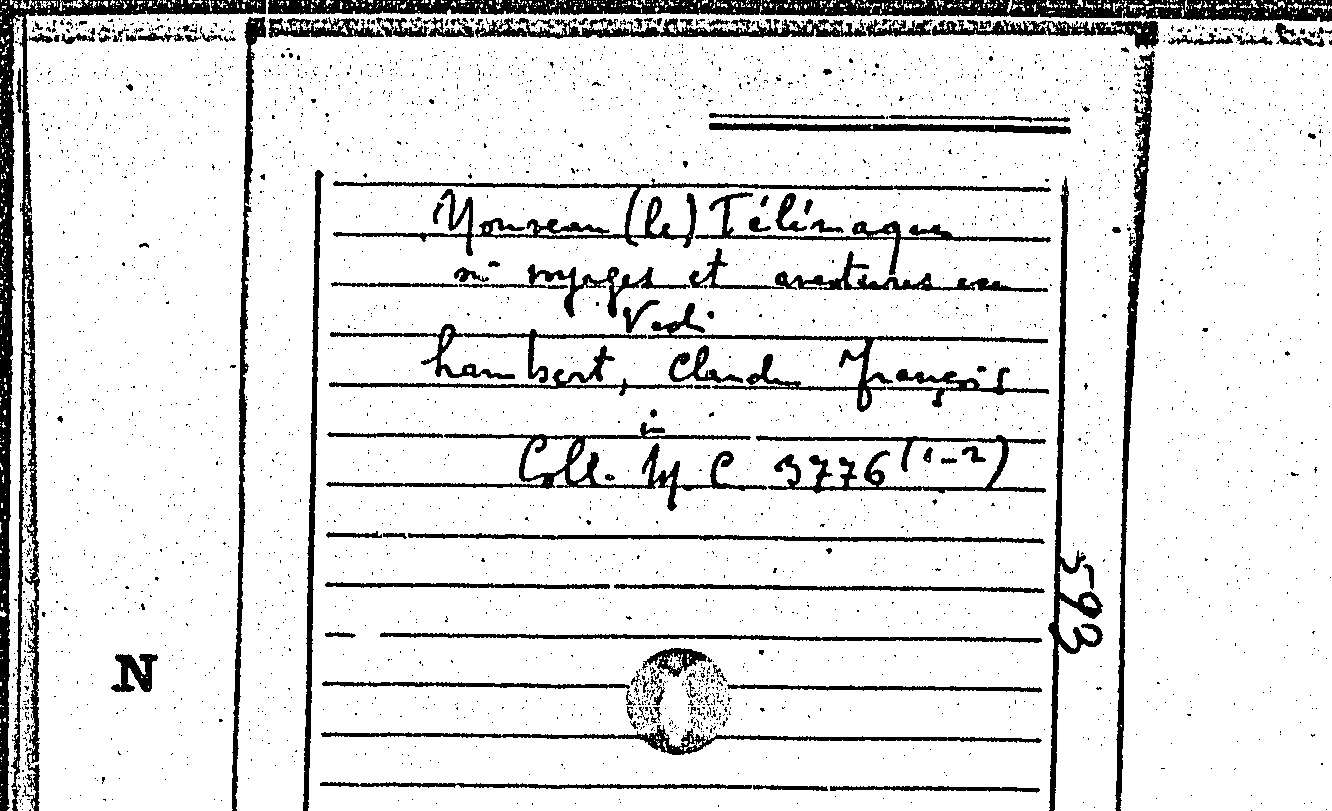 Nouveau (le) Télémaque
voyages et aventures
Vedi
Lambert, Claude François
in
Coll. C 3776 (1-2)
593
N